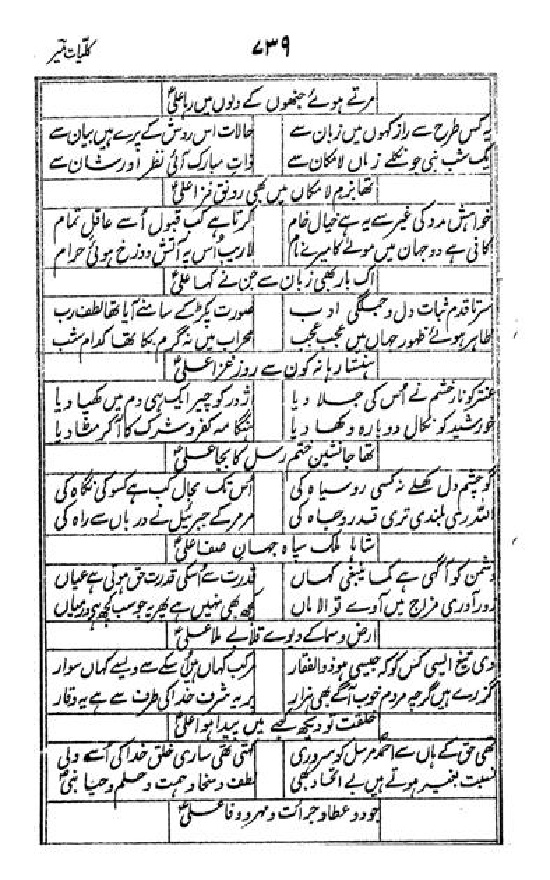 کلیات میر
۷۳۹
مرتے ہوئے جنھوں کے دلوں میں رہا علیؑ
یہ کس طرح سے راز کہوں میں زبان سے حالات اس روش کے پرے ہیں بیان سے
یک شب نبی جو نکلے زماں لامکان سے ذاتِ مبارک آئی نظر اور شان سے
تھا بزم لامکاں میں بھی رونق فزا علیؑ
خواہش مدد کی غیر سے یہ ہے خیال خام کرتا ہے کب قبول اُسے عاقل تمام
کافی ہے دو جہان میں مولے کا میرے نام لاریب اُس پہ آتش دوزخ ہوئی حرام
اک بار بھی زبان سے جن نے کہا علیؑ
سر تا قدم ثبات دل و جملگی ادب صورت پکڑ کے سامنے آیا تھا لطف رب
ظاہر ہوئے ظہور جہاں میں عجب عجب محراب میں نہ گرم بکا تھا کدام شب
ہنستا رہا نہ کون سے روز غزا علیؑ
عنتر کو نار خشم نے اُس کی جلا دیا اژدر کو چیر ایک ہی دم میں کھپا دیا
خورشید کو نکال دوبارہ دکھا دیا ہنگامہ کفر و شرک کا آکر مٹا دیا
تھا جانشین ختم رسل کا بجا علیؑ
گو چشم دل کھلے نہ کسی روسیاہ کی اُس تک مجال کب ہے کسو کی نگاہ کی
اللہ ری بلندی تری قدر و جاہ کی مر مر کے جبرئیل نے درباں سے راہ کی
شاہا ملک سپاہ جہان صفا علیؑ
دشمن کو آگہی ہے کما ینبغی کہاں قدرت سے اُسکی قدرت حق ہوتی ہے عیاں
زور آوری مزاج میں آوے تو الاماں کچھ بھی نہیں ہے پھر یہ جو سب کچھ ہے درمیاں
ارض و سما کے دیوے قلابے ملا علیؑ
دی تیغ ایسی کس کو کہ جیسی ہو ذوالفقار مرکب کہاں ہیں اُسکے سے ویسے کہاں سوار
گزرے ہیں گرچہ مردم خوب آگے بھی ہزار پر یہ شرف خدا کی طرف سے ہے یہ وقار
خلقت تو دیکھ کعبے میں پیدا ہوا علیؑ
تھی حق کے ہاں سے احمد مرسل کو سروری کہتی تھی ساری خلق خدا کی اُسے ولی
نسبت بغیر ہوتے ہیں بے اتحاد بھی لطف و سخا و ہمت و حلم و حیا نبیؐ
جود و عطا و جرأت و مہر و وفا علیؑ